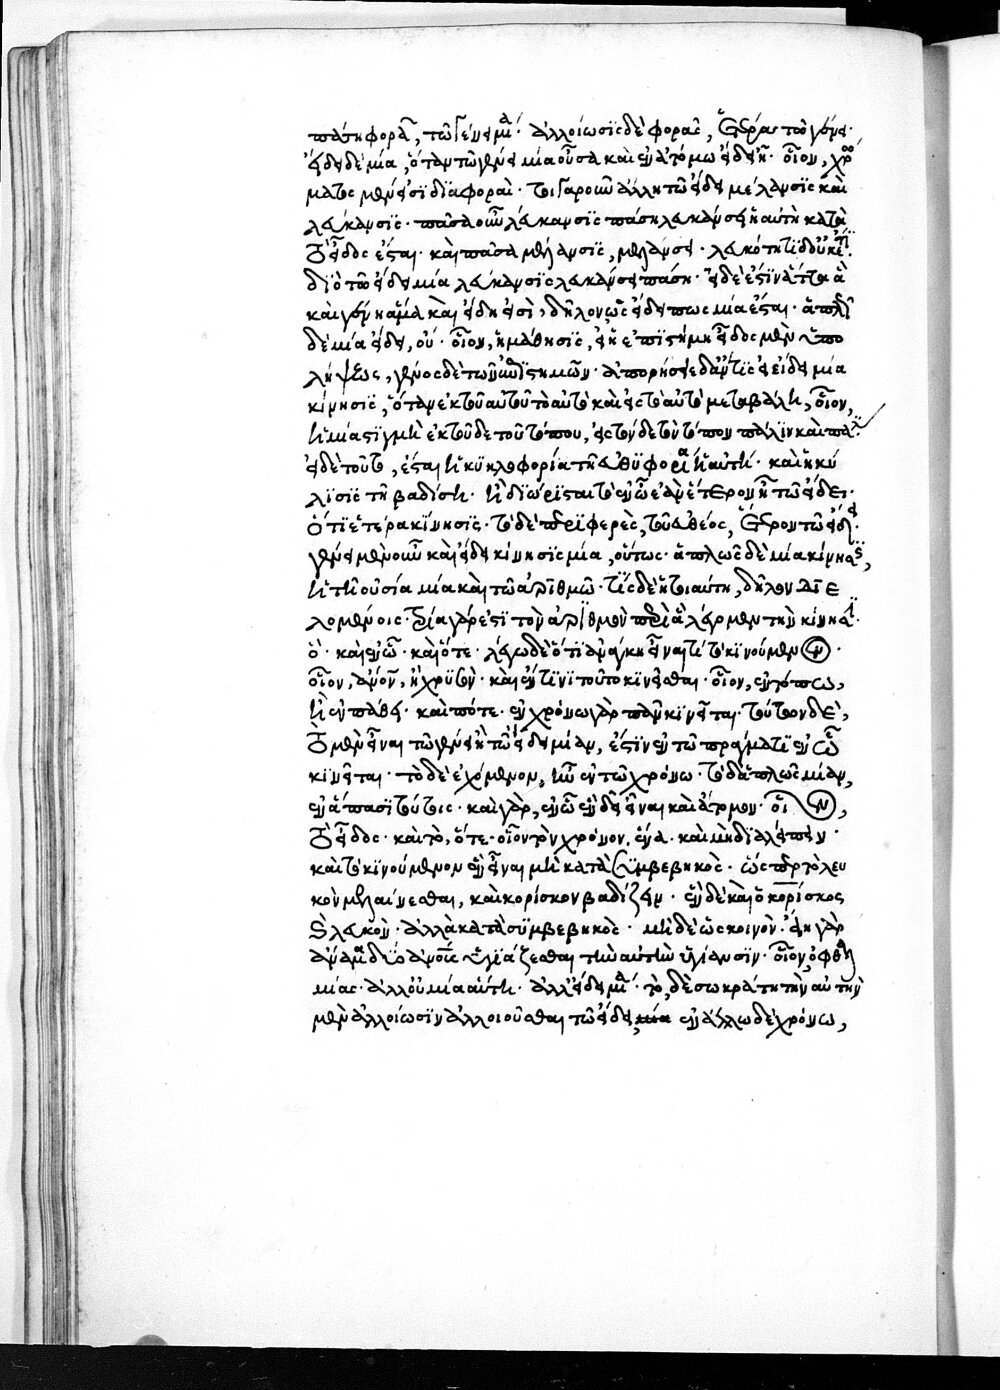 πάση φορᾶ, τῶ γένει μία· ἀλλοίωσις δὲ φορᾶς, ἑτέρα τῶ γένει·
εἴδει δὲ μία, ὅταν τῶ γένει μία οὖσα καὶ ἐν ἀτόμω εἴδει ἦ· οἷον, χρώ
ματος μέν εἰσι διαφοραί· τοιγαροῦν ἄλλη τῶ εἴδει μέλανσις καὶ
λεύκανσις· πᾶσα οὖν λεύκανσις πάση λευκάνσει ἡ αὐτὴ κατὰ
τὸ εἶδος ἔσται· καὶ πᾶσα μέλανσις, μελάνσει· λευκότητι δ' οὐκέτι·
διὸ τῶ εἴδει μία λεύκανσις λευκάνσει πάση· εἰ δέ ἐστιν ἄττα ἃ
καὶ γένη ἅμα καὶ εἴδη εἰσὶ, δῆλον ὡς εἴδει πως μία ἔσται· ἁπλῶς
δὲ μία εἴδει, οὔ· οἷον, ἡ μάθησις, εἰ ἡ ἐπιστήμη εἶδος μὲν ὑπο
λήψεως, γένος δὲ τῶν ἐπιστημῶν· ἀπορήσειε δ' ἄν τις εἰ εἴδει μία
κίνησις, ὅταν ἐκ τοῦ αὐτοῦ τὸ αὐτὸ καὶ εἰς τὸ αὐτὸ μεταβάλη, οἷον,
ἡ μία στιγμὴ ἐκ τοῦδε τοῦ τόπου, εἰς τόνδε τὸν τόπον πάλιν καὶ πάλιν
εἰ δὲ τοῦτο, ἔσται ἡ κυκλοφορία τῆ εὐθυφορία ἡ αὐτή· καὶ ἡ κύ
λισις τῆ βαδίσει· ἢ διώρισται τὸ ἐν ὧ ἐὰν ἕτερον ἦ τῶ εἴδει·
ὅτι ἑτέρα κίνησις· τὸ δὲ περιφερὲς, τοῦ εὐθέος, ἕτερον τῶ εἴδει·
γένει μὲν οὖν καὶ εἴδει κίνησις μία, οὕτως· ἁπλῶς δὲ μία κίνησις,
ἡ τῆ οὐσία μία καὶ τῶ ἀριθμῶ· τίς δὲ ἡ τοιαύτη, δῆλον διε
λομένοις· τρία γάρ ἐστι τὸν ἀριθμὸν περὶ ἃ λέγομεν τὴν κίνησιν·
ὅ· καὶ ἐν ὧ· καὶ ὅτε· λέγω δὲ ὅτι ἀνάγκη εἶναί τι τὸ κινούμενον·
οἷον, ἄνον, ἢ χρυσόν· καὶ ἔν τινι τοῦτο κινεῖσθαι· οἷον, ἐν τόπω,
ἢ ἐν πάθει· καὶ πότε· ἐν χρόνω γὰρ πᾶν κινεῖται· τούτων δὲ,
τὸ μὲν εἶναι τῶ γένει ἢ τῶ εἴδει μίαν, ἐστὶν ἐν τῶ πράγματι ἐν ὧ
κινεῖται· τὸ δὲ ἐχόμενον, ἦν ἐν τῶ χρόνω· τὸ δ' ἁπλῶς μίαν,
ἐν ἅπασι τούτοις· καὶ γὰρ, ἐν ὧ ἓν δεῖ εἶναι καὶ ἄτομον· οἷον,
τὸ εἶδος· καὶ τὸ, ὅτε· οἷον τὸν χρόνον, ἕνα· καὶ μὴ διαλείπειν·
καὶ τὸ κινούμενον ἓν εἶναι μὴ κατὰ συμβεβηκὸς· ὥσπερ τὸ λευ
κὸν μελαίνεσθαι, καὶ κορίσκον βαδίζειν· ἓν δὲ καὶ ὁ κορίσκος
καὶ λευκὸν· ἀλλὰ κατὰ συμβεβηκός· μηδὲ ὡς κοινόν· εἴη γὰρ
ἂν ἅμα δύο ἀνοις ὑγιάζεσθαι τὴν αὐτὴν ὑγίανσιν· οἷον, ὀφθαλ
μίας· ἀλλ' οὐ μία αὕτη· ἀλλ' εἴδει μία· τὸ, δὲ σωκράτη τὴν αὐτὴν
μὲν ἀλλοίωσιν ἀλλοιοῦσθαι τῶ εἴδει, ἐν ἄλλω δὲ χρόνω,